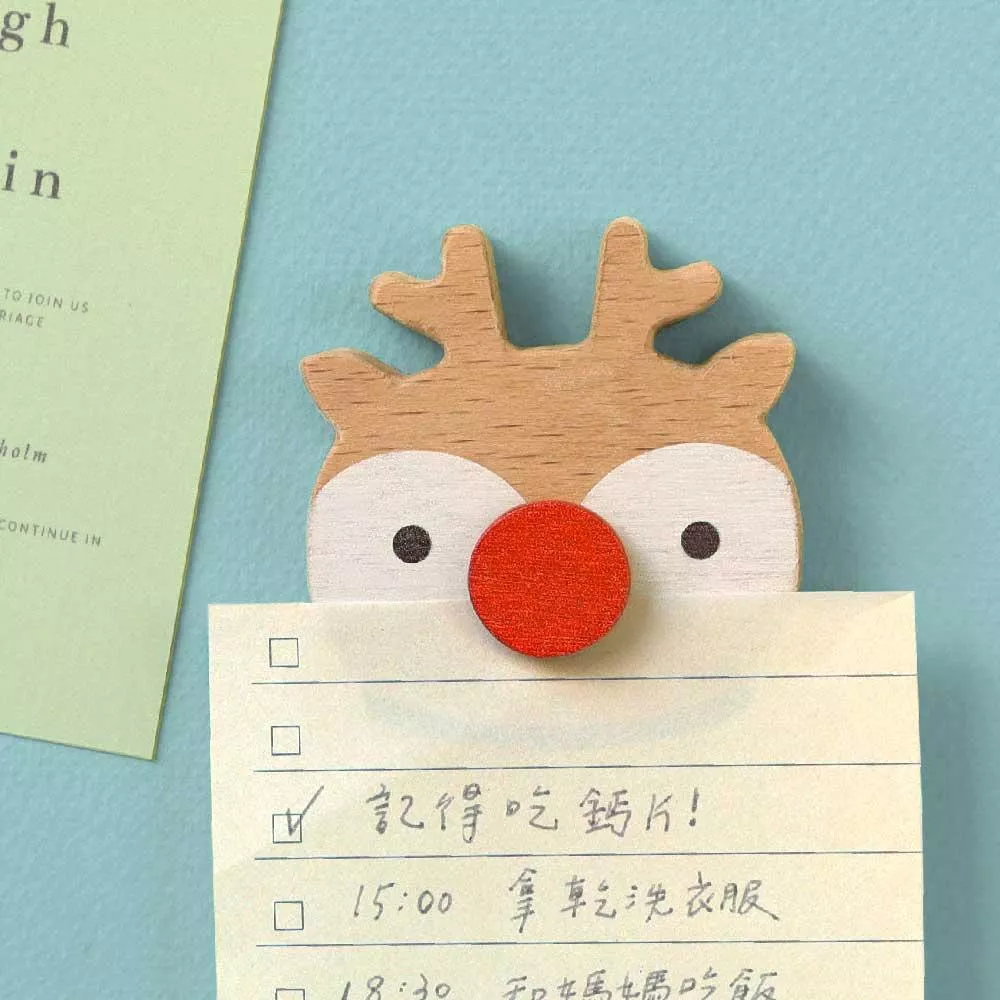 gh
in
TO JOIN US
RIAGE
holm
CONTINUE IN
記得吃鈣片!
15:00 拿乾洗衣服
18:30 和媽媽吃飯